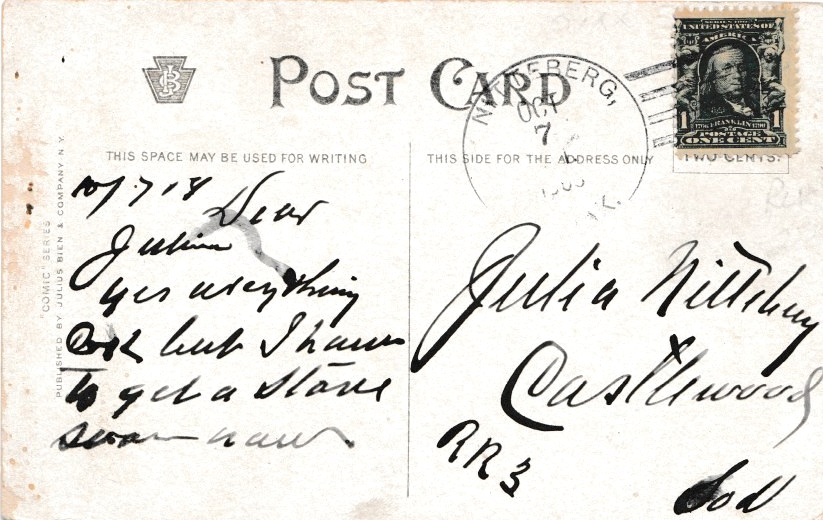 SERIES 1902
UNITED STATES OF
AMERICA
1 1706 FRANKLIN 1790 1
POSTAGE
ONE CENT
TWO CENTS.
POST CARD
OCT
7
THIS SPACE MAY BE USED FOR WRITING
THIS SIDE FOR THE ADDRESS ONLY
"COMIC" SERIES
PUBLISHED BY JULIUS BIEN & COMPANY N.Y.
Dear
Julia
yes everything
but I have
to get a stove
now.
Julia
Castlewood
RR 3